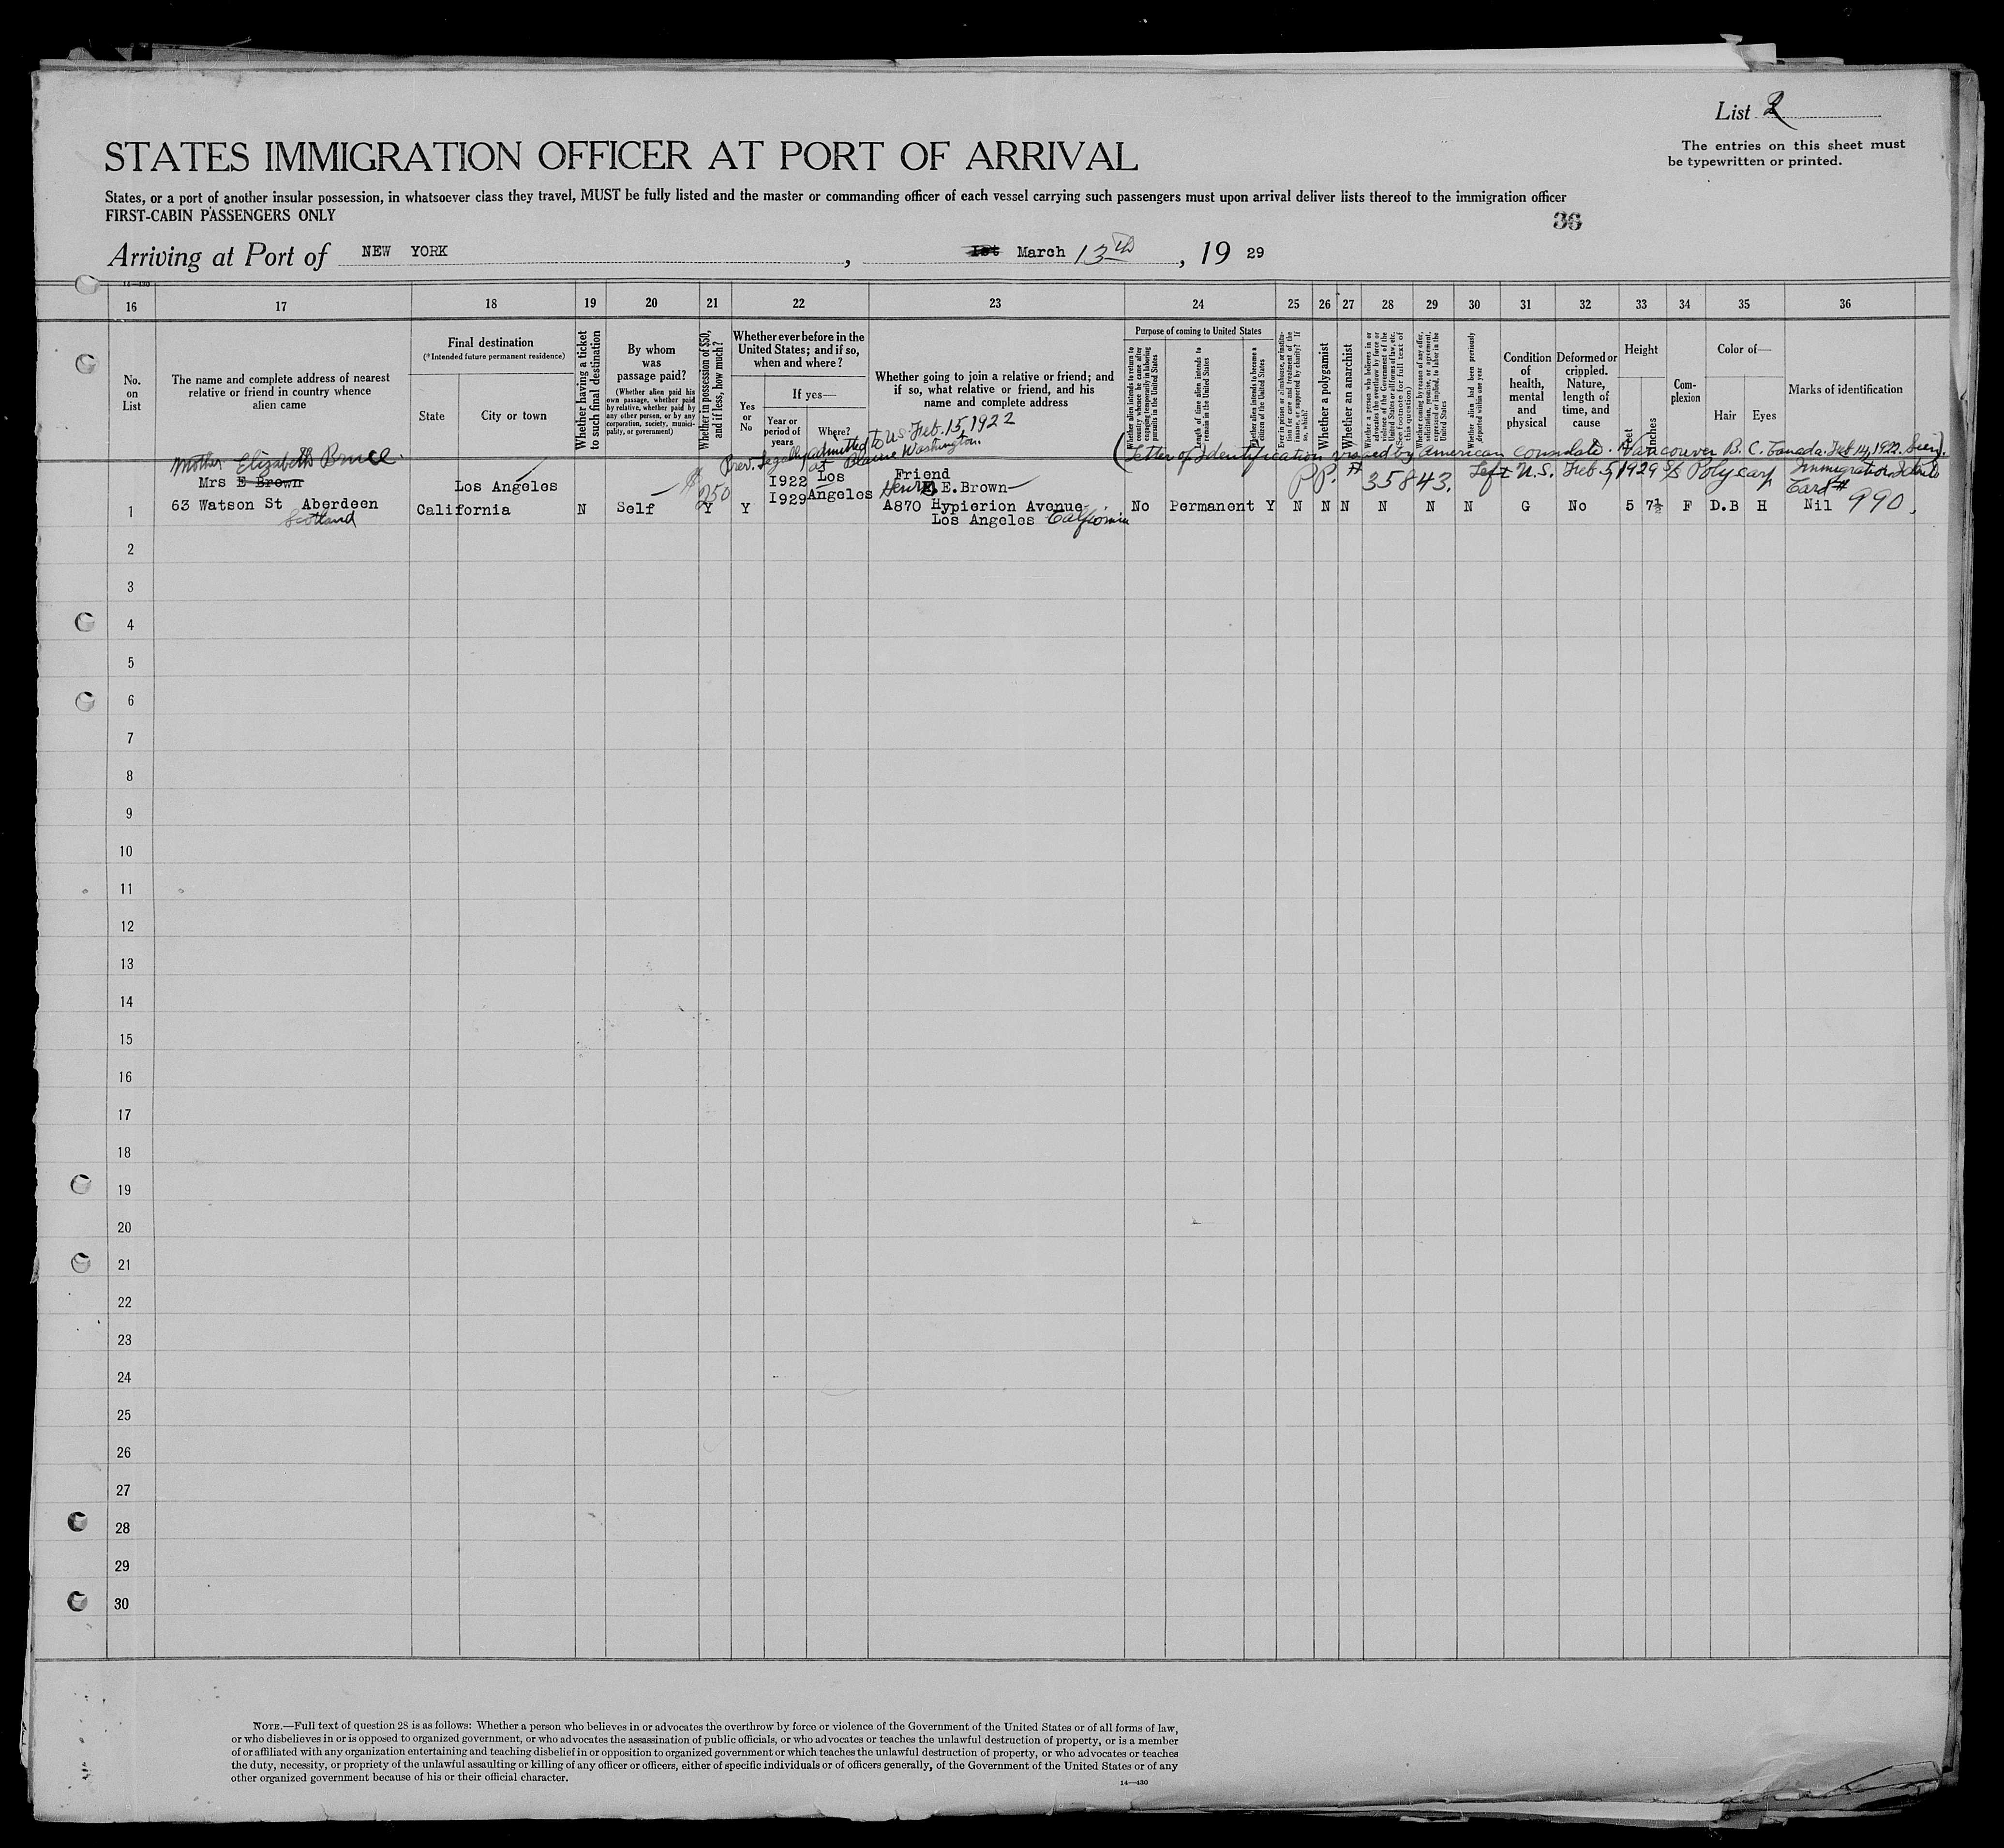 List 2
The entries on this sheet must
be typewritten or printed.
STATES IMMIGRATION OFFICER AT PORT OF ARRIVAL
States, or a port of another insular possession, in whatsoever class they travel, MUST be fully listed and the master or commanding officer of each vessel carrying such passengers must upon arrival deliver lists thereof to the immigration officer
FIRST-CABIN PASSENGERS ONLY
36
Arriving at Port of NEW YORK, 1st March 13th, 19 29
14—430
16 17 18 19 20 21 22 23 24 25 26 27 28 29 30 31 32 33 34 35 36
No.
on
List
The name and complete address of nearest
relative or friend in country whence
alien came
Final destination
(*Intended future permanent residence)
State
City or town
Whether having a ticket
to such final destination
By whom
was
passage paid?
(Whether alien paid his
own passage, whether paid
by relative, whether paid by
any other person, or by any
corporation, society, munici-
pality, or government)
Whether in possession of $50,
and if less, how much?
Whether ever before in the
United States; and if so,
when and where?
Yes
or
No
If yes—
Year or
period of
years
Where?
Whether going to join a relative or friend; and
if so, what relative or friend, and his
name and complete address
Purpose of coming to United States
Whether alien intends to return to
country whence he came after
engaging temporarily in laboring
pursuits in the United States
Length of time alien intends to
remain in the United States
Whether alien intends to become a
citizen of the United States
Ever in prison or almshouse, or institu-
tion for care and treatment of the
insane, or supported by charity? If
so, which?
Whether a polygamist
Whether an anarchist
Whether a person who believes in or
advocates the overthrow by force or
violence of the Government of the
United States or all forms of law, etc.
(See footnote for full text of
this question)
Whether coming by reason of any offer,
solicitation, promise, or agreement,
expressed or implied, to labor in the
United States
Whether alien had been previously
deported within one year
Condition
of
health,
mental
and
physical
Deformed or
crippled.
Nature,
length of
time, and
cause
Height
Feet
Inches
Com-
plexion
Color of—
Hair
Eyes
Marks of identification
Prev. legally admitted to U.S. Feb. 15, 1922
at Blaine Washington
(Letter of Identification visaed by American consulate. Vancouver B. C. Canada. Feb 14, 1922. Seen).
PP. # 35843. Left U.S. Feb. 5, 1929 S/S Polycarp Immigration
Card # 990.
mother Elizabeth Bruce.
Mrs E Brown
Los Angeles
$250
1922 Los
1929 Angeles
Friend
Henry E.Brown
1 63 Watson St Aberdeen California N Self Y Y A870 Hypierion Avenue No Permanent Y N N N N N N G No 5 7½ F D.B H Nil
Scotland
Los Angeles California
2
3
4
5
6
7
8
9
10
11
12
13
14
15
16
17
18
19
20
21
22
23
24
25
26
27
28
29
30
NOTE.—Full text of question 28 is as follows: Whether a person who believes in or advocates the overthrow by force or violence of the Government of the United States or of all forms of law,
or who disbelieves in or is opposed to organized government, or who advocates the assassination of public officials, or who advocates or teaches the unlawful destruction of property, or is a member
of or affiliated with any organization entertaining and teaching disbelief in or opposition to organized government or which teaches the unlawful destruction of property, or who advocates or teaches
the duty, necessity, or propriety of the unlawful assaulting or killing of any officer or officers, either of specific individuals or of officers generally, of the Government of the United States or of any
other organized government because of his or their official character.
14—430